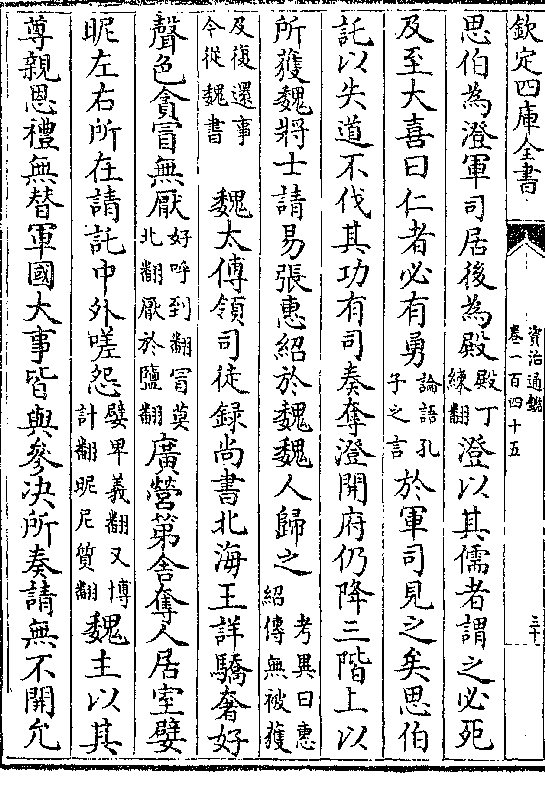 欽定四庫全書
資治通鑑
卷一百四十五
三十
思伯為澄軍司居後為殿殿丁練翻澄以其儒者謂之必死
及至大喜曰仁者必有勇論語孔子之言於軍司見之矣思伯
託以失道不伐其功有司奏奪澄開府仍降三階上以
所獲魏將士請易張惠紹於魏魏人歸之考異曰惠紹傳無被獲
及復還事今從魏書魏太傅領司徒録尚書北海王詳驕奢好
聲色貪冒無厭好呼到翻冒莫北翻厭於鹽翻廣營第舍奪人居室嬖
昵左右所在請託中外嗟怨嬖卑義翻又博計翻昵尼質翻魏主以其
尊親恩禮無替軍國大事皆與參决所奏請無不開允